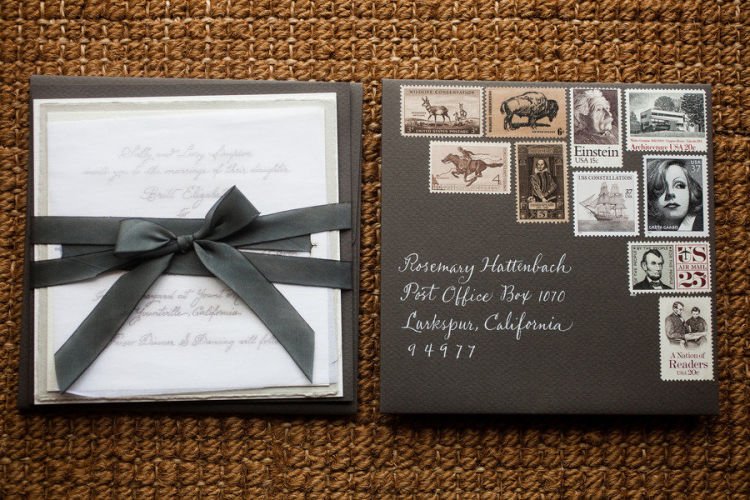 Sally and Larry Simpson
invite you to the marriage of their daughter
Britt Elizabeth
to
at Yount
Yountville, California
Dinner & Dancing will follow
WILDLIFE CONSERVATION
3¢ UNITED STATES POSTAGE
6¢
Einstein
USA 15c
Architecture USA 20c
4¢
USS CONSTELLATION
USA
37
GRETA GARBO
US
AIR MAIL
25
A Nation of
Readers
USA 20c
Rosemary Hattenbach
Post Office Box 1070
Larkspur, California
94977